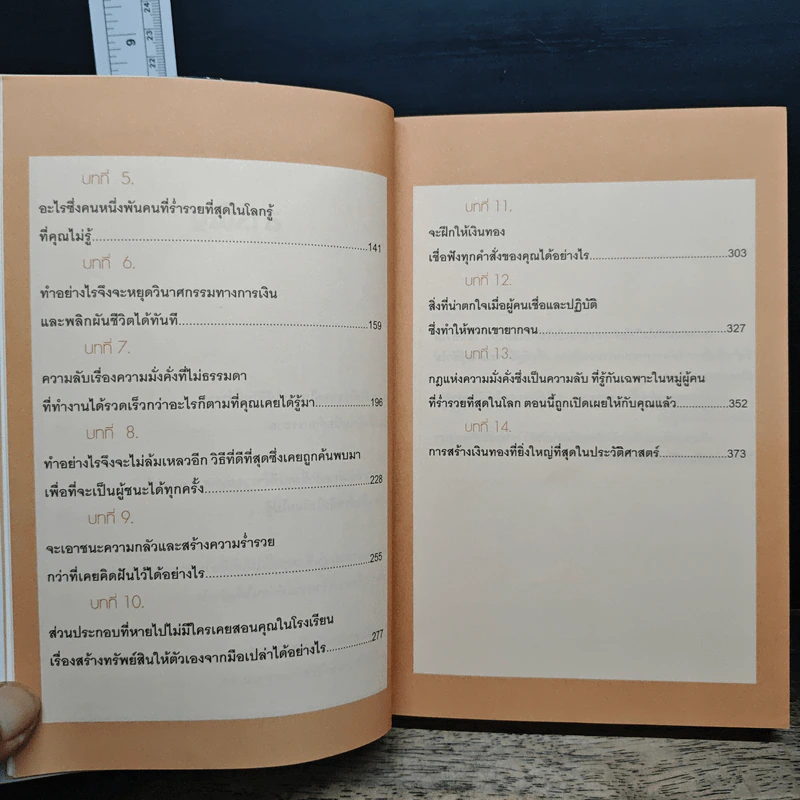 9
24
23
22
บทที่ 5.
อะไรซึ่งคนหนึ่งพันคนที่ร่ำรวยที่สุดในโลกรู้
ที่คุณไม่รู้..............................................................141
บทที่ 6.
ทำอย่างไรจึงจะหยุดวินาศกรรมทางการเงิน
และพลิกผันชีวิตได้ทันที..........................................159
บทที่ 7.
ความลับเรื่องความมั่งคั่งที่ไม่ธรรมดา
ที่ทำงานได้รวดเร็วกว่าอะไรก็ตามที่คุณเคยได้รู้มา...............196
บทที่ 8.
ทำอย่างไรจึงจะไม่ล้มเหลวอีก วิธีที่ดีที่สุดซึ่งเคยถูกค้นพบมา
เพื่อที่จะเป็นผู้ชนะได้ทุกครั้ง....................................228
บทที่ 9.
จะเอาชนะความกลัวและสร้างความร่ำรวย
กว่าที่เคยคิดฝันไว้ได้อย่างไร....................................255
บทที่ 10.
ส่วนประกอบที่หายไปไม่มีใครเคยสอนคุณในโรงเรียน
เรื่องสร้างทรัพย์สินให้ตัวเองจากมือเปล่าได้อย่างไร............277
บทที่ 11.
จะฝึกให้เงินทอง
เชื่อฟังทุกคำสั่งของคุณได้อย่างไร...............................303
บทที่ 12.
สิ่งที่น่าตกใจเมื่อผู้คนเชื่อและปฏิบัติ
ซึ่งทำให้พวกเขายากจน............................................327
บทที่ 13.
กฎแห่งความมั่งคั่งซึ่งเป็นความลับ ที่รู้กันเฉพาะในหมู่ผู้คน
ที่ร่ำรวยที่สุดในโลก ตอนนี้ถูกเปิดเผยให้กับคุณแล้ว.............352
บทที่ 14.
การสร้างเงินทองที่ยิ่งใหญ่ที่สุดในประวัติศาสตร์.................373